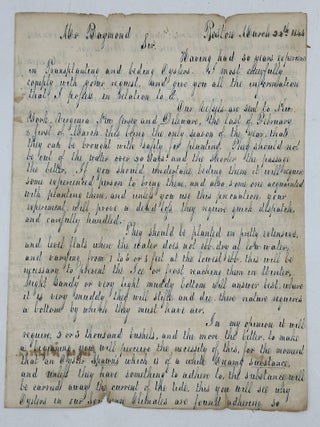 Mr Raymond Boston March 24th 1844
Sir.
Having had 30 years experience
in Transplanting and beding Oysters. I most cheerfully
comply with your request, and give you all the information
that I posess in relation to it.
Our Vessels are sent to New
York, Virginia, New Jersey and Dilware, the last of February
& first of March, this being the only season of the year, that
they can be brought with safty for planting. They should not
be out of the water over 30 days and the shorter the passage
the better. If you should undertake beding them it will require
some experienced person to bring them, and also some one acquainted
with planting them, and unless you use this precaution, your
experiment will prove a they require quick dispatch,
and carefully handled.
They should be planted in pretty extensive,
and level flats where the water does not at low water,
and varying from 1 to 5 or 6 feet at the lowest ebb, this will be
necessary to prevent the Ice or frost reaching them in Winter,
light Sandy or very light muddy bottom will answer best, where
it is very muddy they will stifle and die, there nature requires
a bottom by which they must have air.
In my opinion it will
require 2 or 3 thousand bushels, and the more the better, to make
a beginning, you will percieve the necessity of this, for the moment
that an Oyster Spawns which is of a white Gummy substance,
and unless they have something to adhere to, the substance will
be carried away the current of the tide, this you will see why
Oysters in our are found adhering so